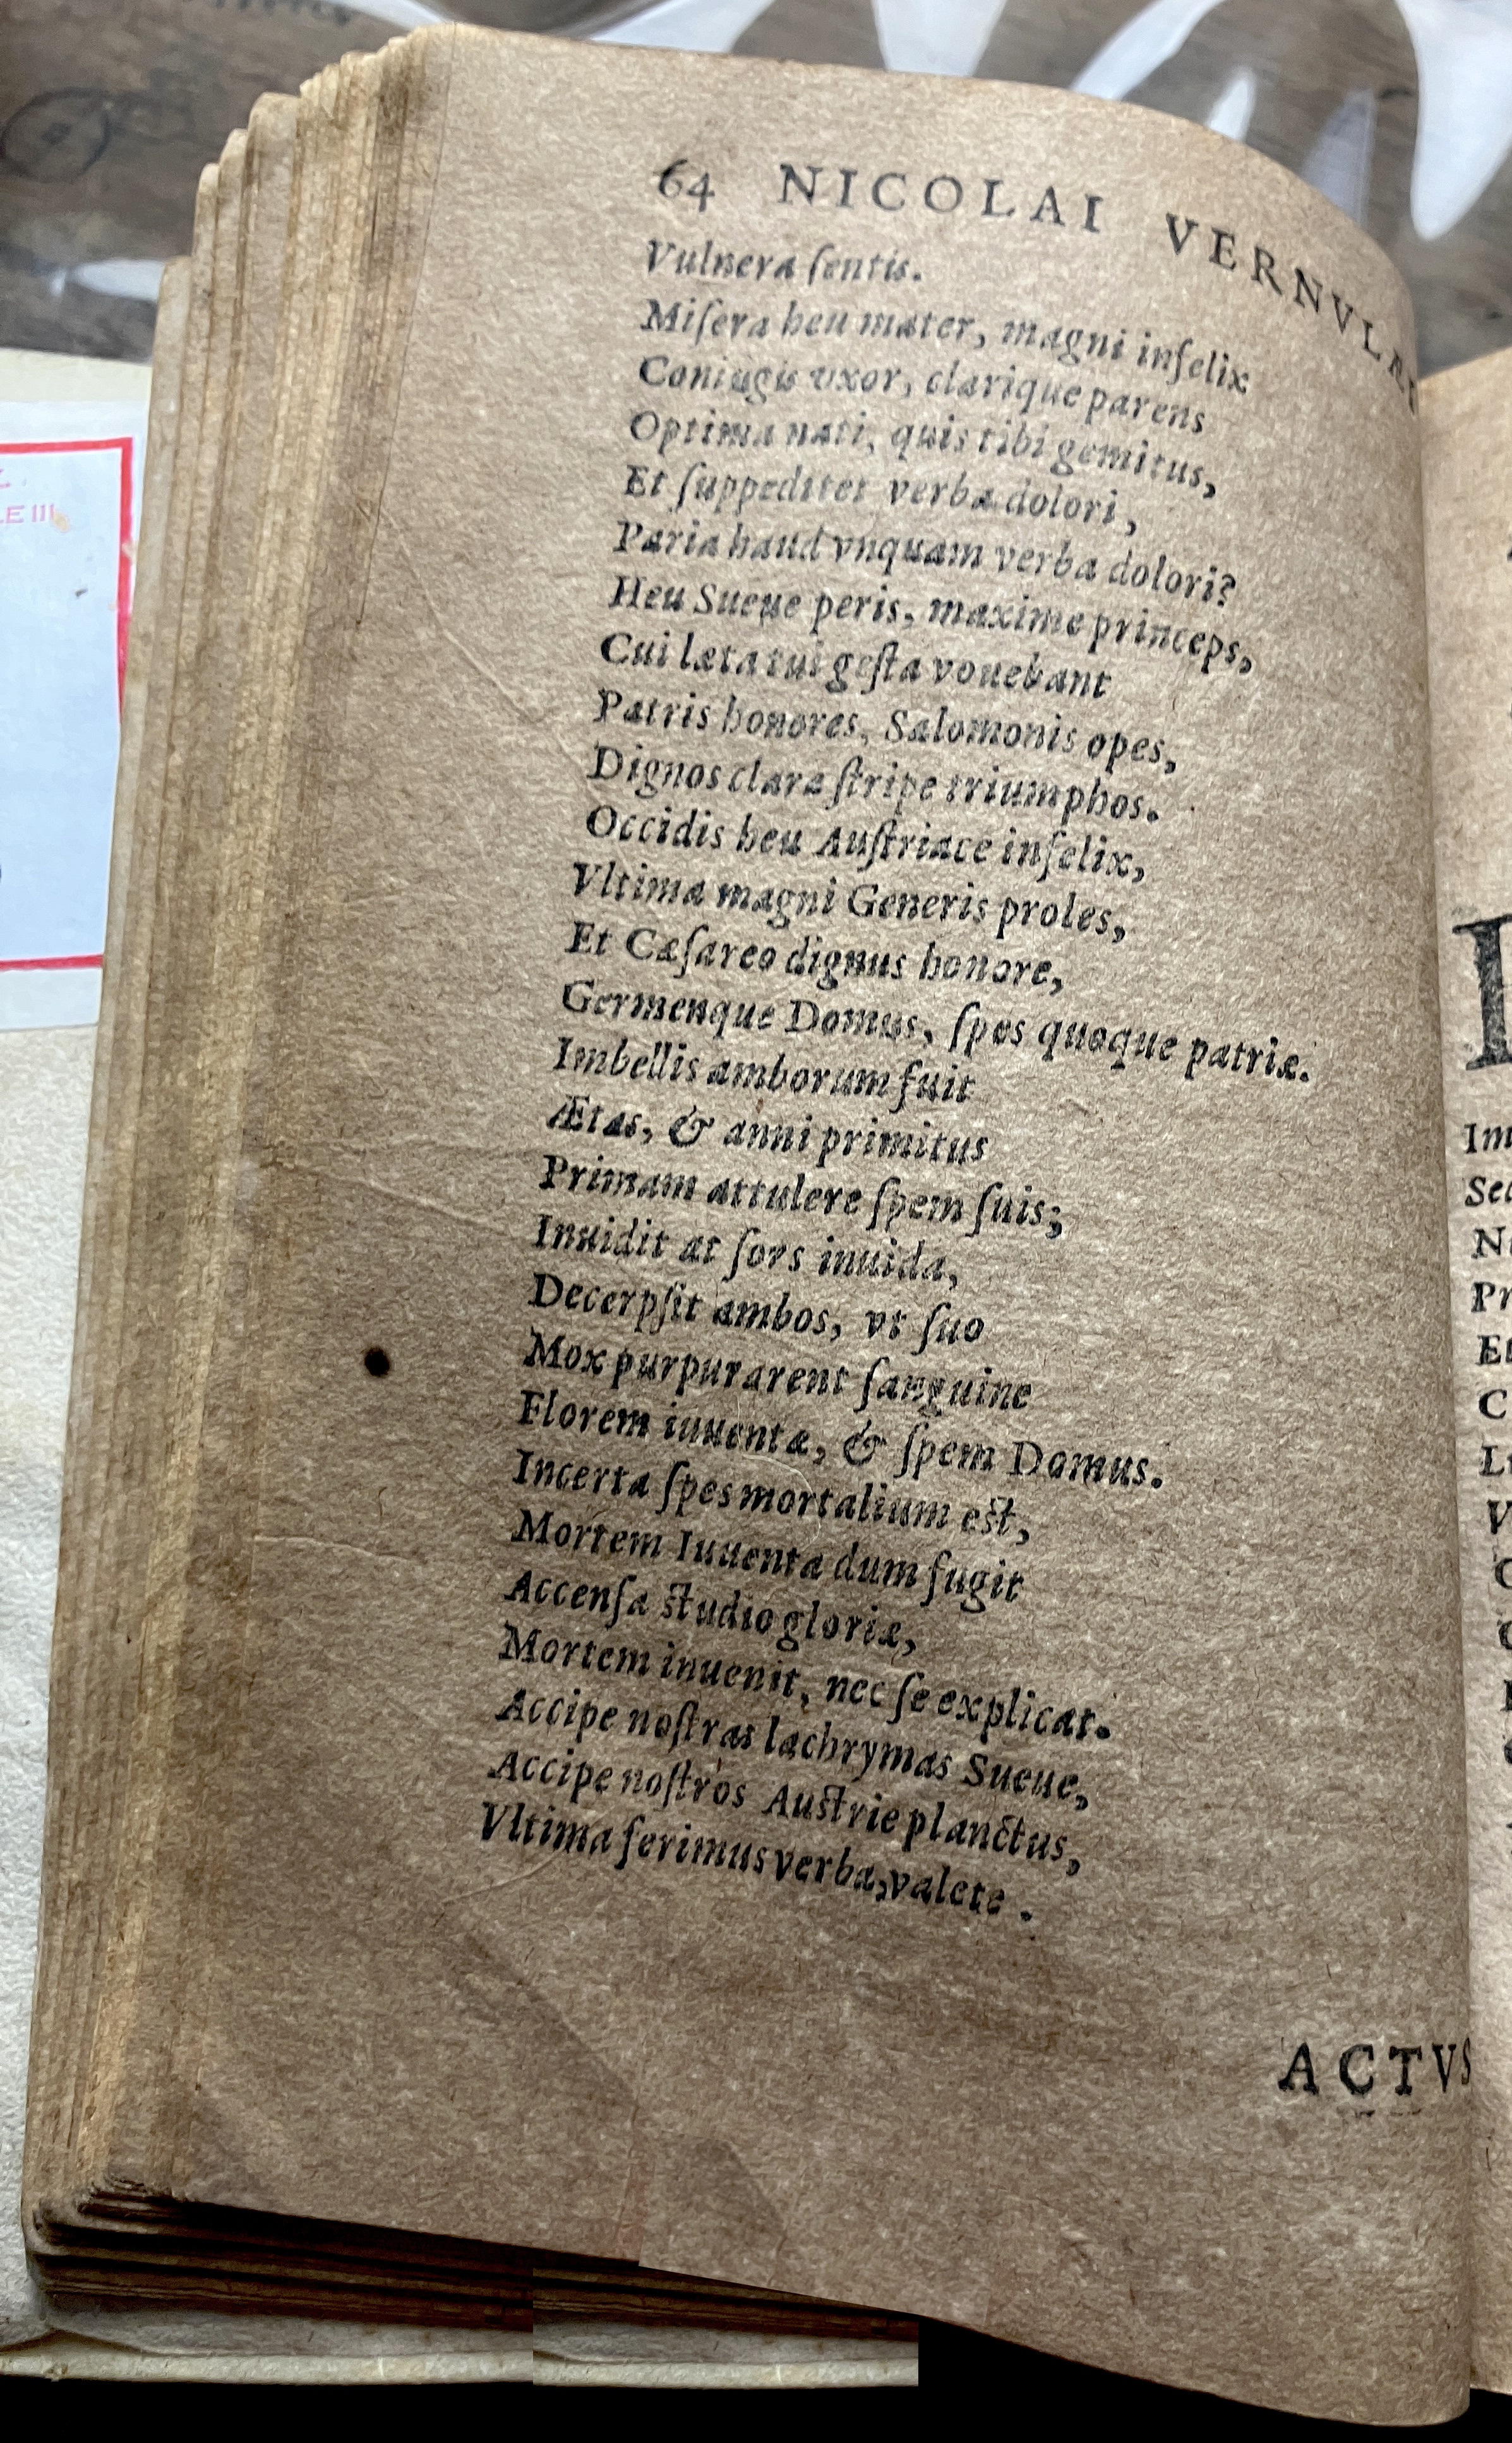 64 NICOLAI VERNVLAEI
Vulnera ſentis.
Miſera heu mater, magni infelix
Coniugis vxor, clarique parens
Optima nati, quis tibi gemitus,
Et ſuppeditet verba dolori,
Paria haud vnquam verba dolori?
Heu Sueue peris, maxime princeps,
Cui læta tui geſta vouebant
Patris honores, Salomonis opes,
Dignos clara ſtripe triumphos.
Occidis heu Auſtriace infelix,
Vltima magni Generis proles,
Et Cæſareo dignus honore,
Germenque Domus, ſpes quoque patriæ.
Imbellis amborum fuit
Ætas, & anni primitus
Primam attulere ſpem ſuis;
Inuidit at ſors inuida,
Decerpſit ambos, vt ſuo
Mox purpurarent ſanguine
Florem iuuentæ, & ſpem Domus.
Incerta ſpes mortalium eſt,
Mortem Iuuenta dum fugit
Accenſa ſtudio gloriæ,
Mortem inuenit, nec ſe explicat.
Accipe noſtras lachrymas Sueue,
Accipe noſtros Auſtrie planctus,
Vltima ferimus verba, valete.
ACTVS
LE III
Im
Sec
Pr